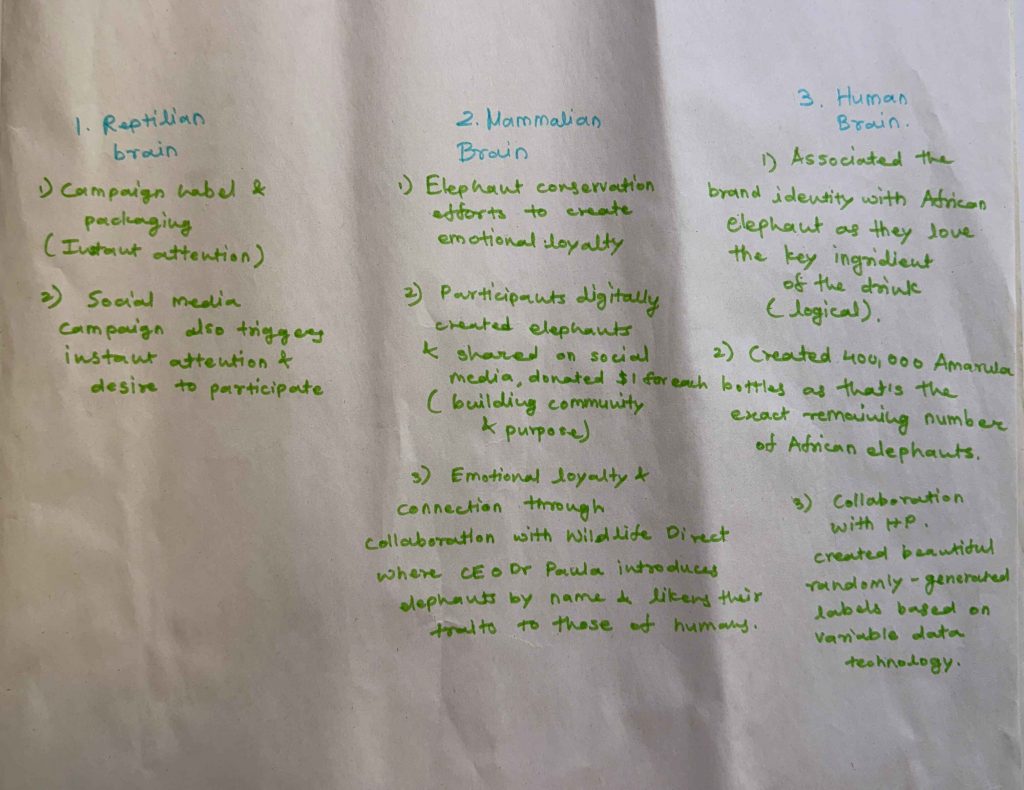 1. Reptilian
brain
1) Campaign Label &
packaging
(Instant attention)
2) Social media
campaign also triggers
instant attention &
desire to participate
2. Mammalian
Brain
1) Elephant conservation
efforts to create
emotional loyalty
2) Participants digitally
created elephants
& shared on social
media, donated $1 for each
( building community
& purpose)
3) Emotional loyalty &
connection through
collaboration with Wildlife Direct
where CEO Dr Paula introduces
elephants by name & likens their
traits to those of humans.
3. Human
Brain.
1) Associated the
brand identity with African
elephant as they love
the key ingridient
of the drink
(logical).
2) Created 400,000 Amarula
bottles as that's the
exact remaining number
of African elephants.
3) Collaboration
with HP.
created beautiful
randomly-generated
labels based on
variable data
technology.